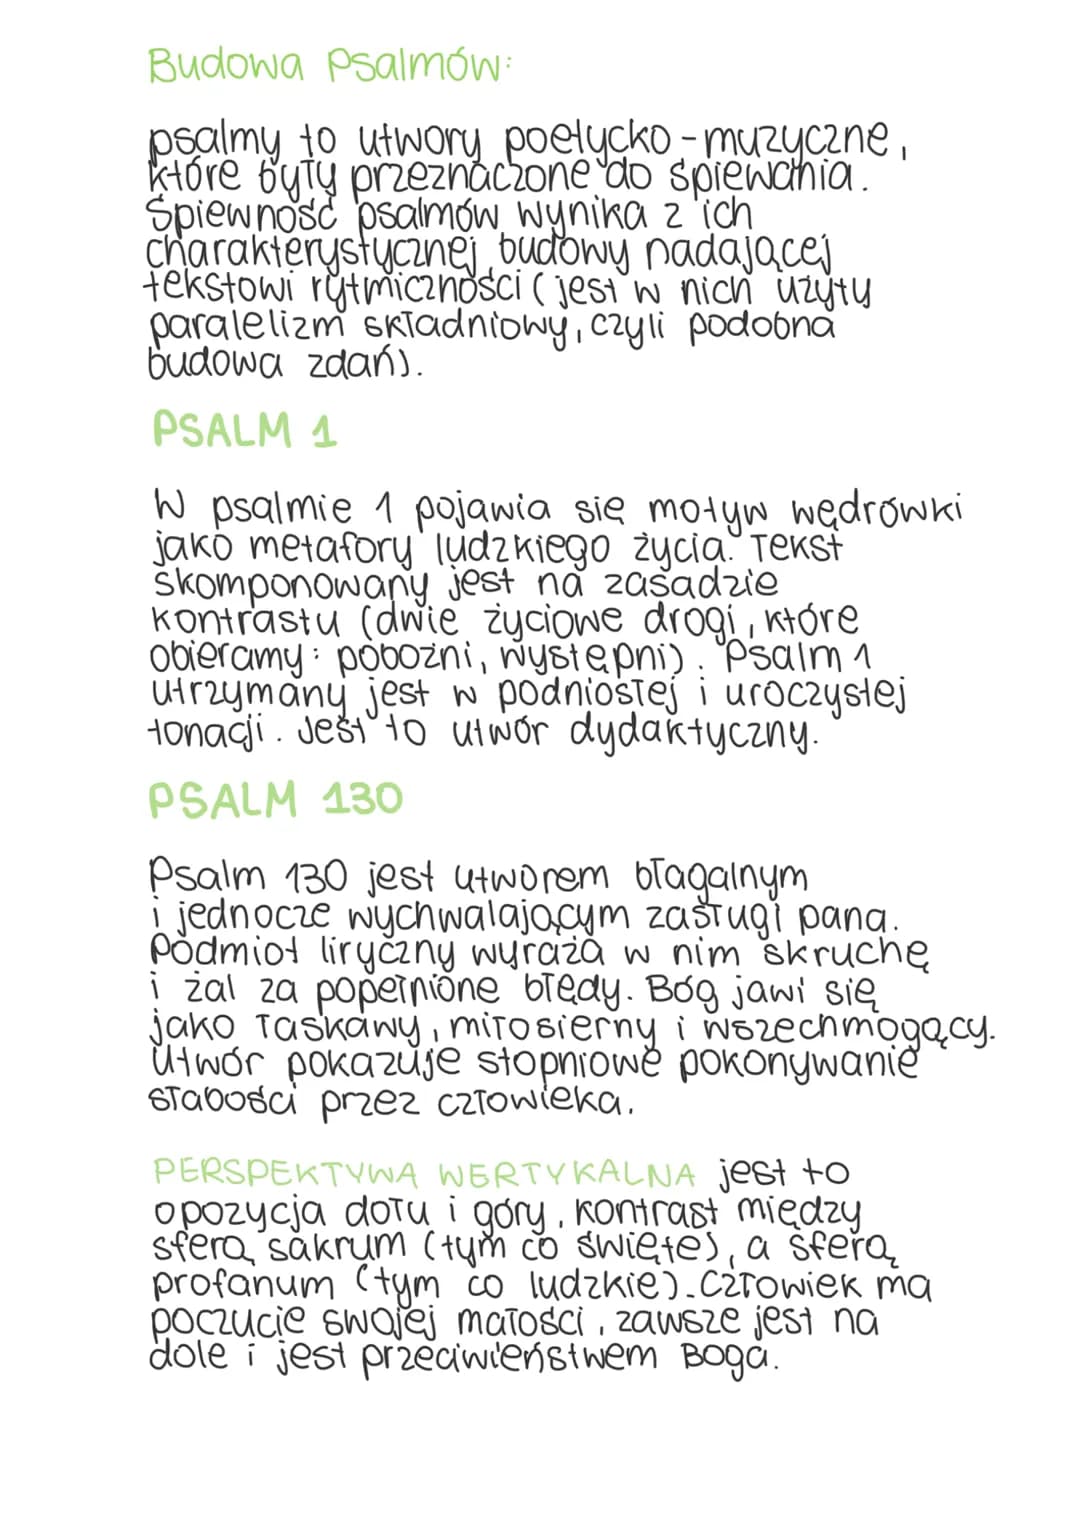 Budowa Psalmów:
psalmy to utwory poetycko-muzyczne,
które były przeznaczone do śpiewania.
Śpiewność psalmów wynika z ich
charakterystycznej budowy nadającej
tekstowi rytmiczności (jest w nich użyty
paralelizm składniowy, czyli podobna
budowa zdań).
PSALM 1
W psalmie 1 pojawia się motyw wędrówki
jako metafory ludzkiego życia. Tekst
skomponowany jest na zasadzie
kontrastu (dwie życiowe drogi, które
obieramy: pobożni, występni). Psalm 1
utrzymany jest w podniosłej i uroczystej
tonacji. Jest to utwór dydaktyczny.
PSALM 130
Psalm 130 jest utworem błagalnym
i jednocze wychwalającym zasługi pana.
Podmiot liryczny wyraża w nim skruchę
i żal za popełnione błędy. Bóg jawi się
jako łaskawy, miłosierny i wszechmogący.
Utwór pokazuje stopniowe pokonywanie
słabości przez człowieka.
PERSPEKTYWA WERTYKALNA jest to
opozycja dołu i góry, kontrast między
sferą sakrum (tym co święte), a sferą
profanum (tym co ludzkie). Człowiek ma
poczucie swojej małości, zawsze jest na
dole i jest przeciwieństwem Boga.